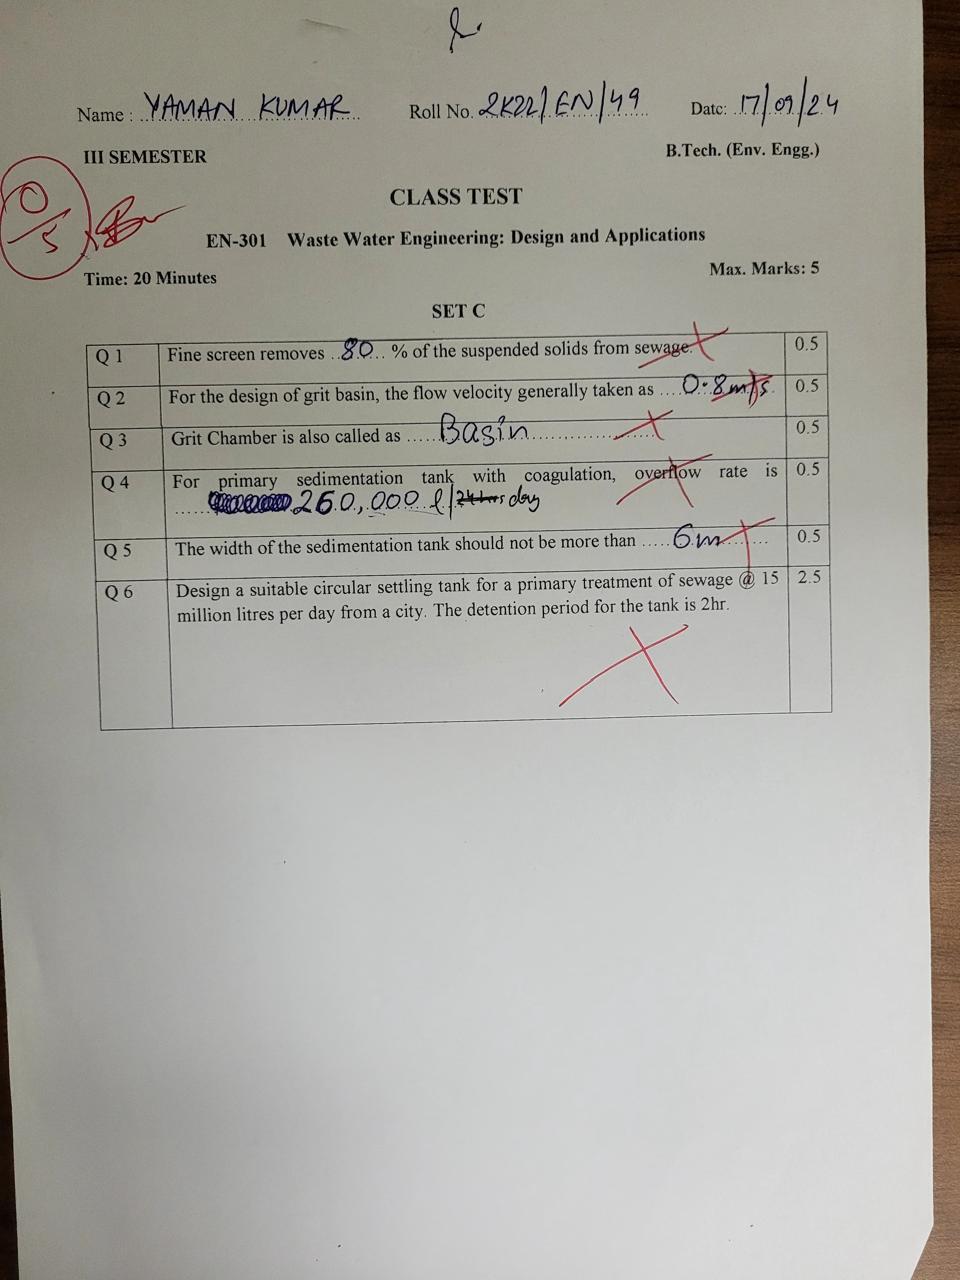 Name : YAMAN KUMAR Roll No. 2K22/EN/49 Date: 17/09/24
III SEMESTER B.Tech. (Env. Engg.)
0/5
CLASS TEST
EN-301 Waste Water Engineering: Design and Applications
Time: 20 Minutes Max. Marks: 5
SET C
Q 1 Fine screen removes ..80.. % of the suspended solids from sewage. 0.5
Q 2 For the design of grit basin, the flow velocity generally taken as ....0.8m/s. 0.5
Q 3 Grit Chamber is also called as ......Basin.................. 0.5
Q 4 For primary sedimentation tank with coagulation, overflow rate is 0.5
......260,000 l/ day
Q 5 The width of the sedimentation tank should not be more than .....6m....... 0.5
Q 6 Design a suitable circular settling tank for a primary treatment of sewage @ 15 2.5
million litres per day from a city. The detention period for the tank is 2hr.